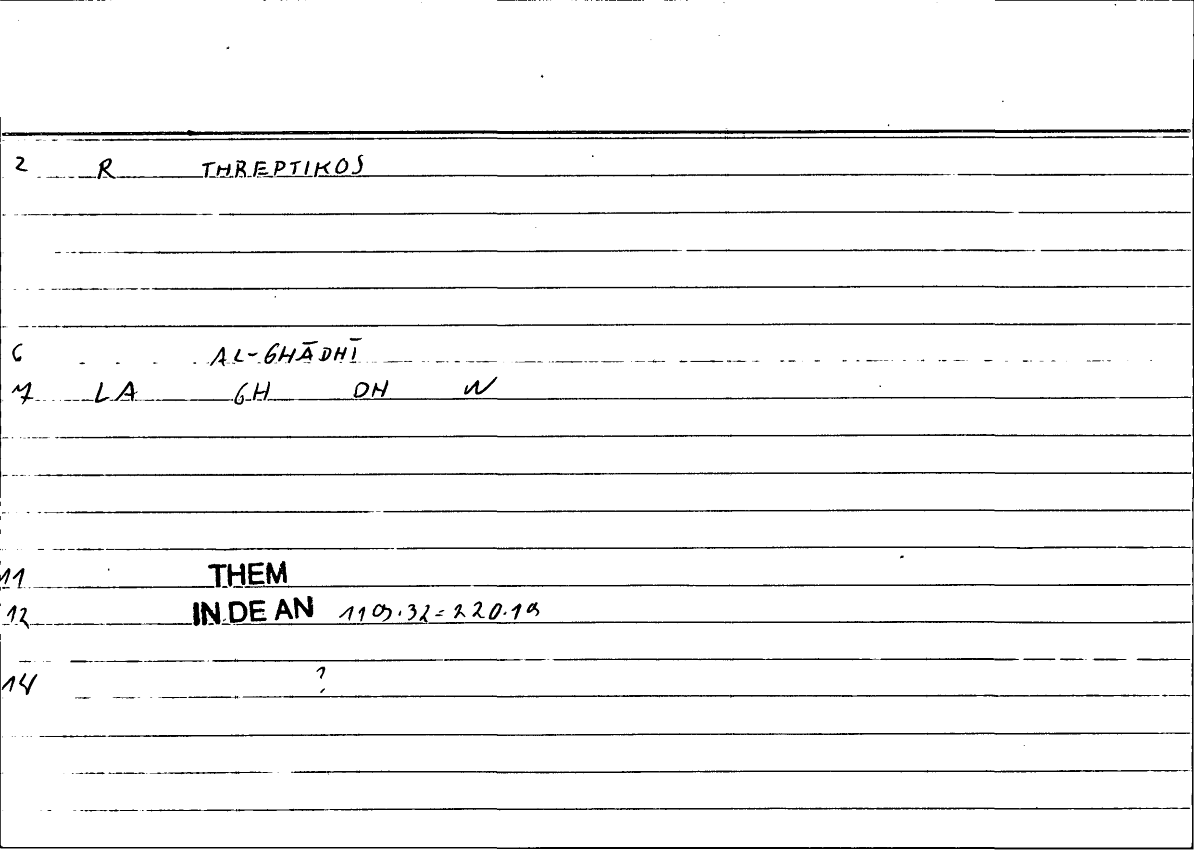 2 R THREPTIKOS
6 AL-GHĀDHĪ
7 LA GH DH W
11 THEM
12 IN DE AN 119.32=220.19
14 ?